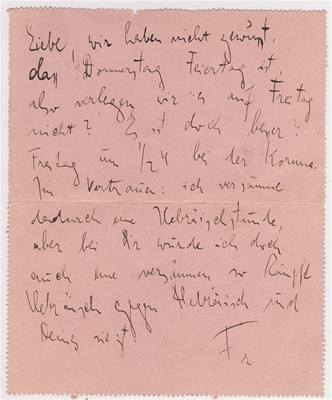 Liebe, wir haben nicht gewusst,
dass Donnerstag Feiertag ist,
also verlegen wir es auf Freitag
nicht? Es ist doch besser?
Freitag um 1/2 4 bei der Koruna.
Im Vertrauen: ich versäume
dadurch eine Hebräischstunde,
aber bei Dir würde ich doch
auch eine versäumen so kämpft
Hebräisch gegen Hebräisch und
Deines siegt
F